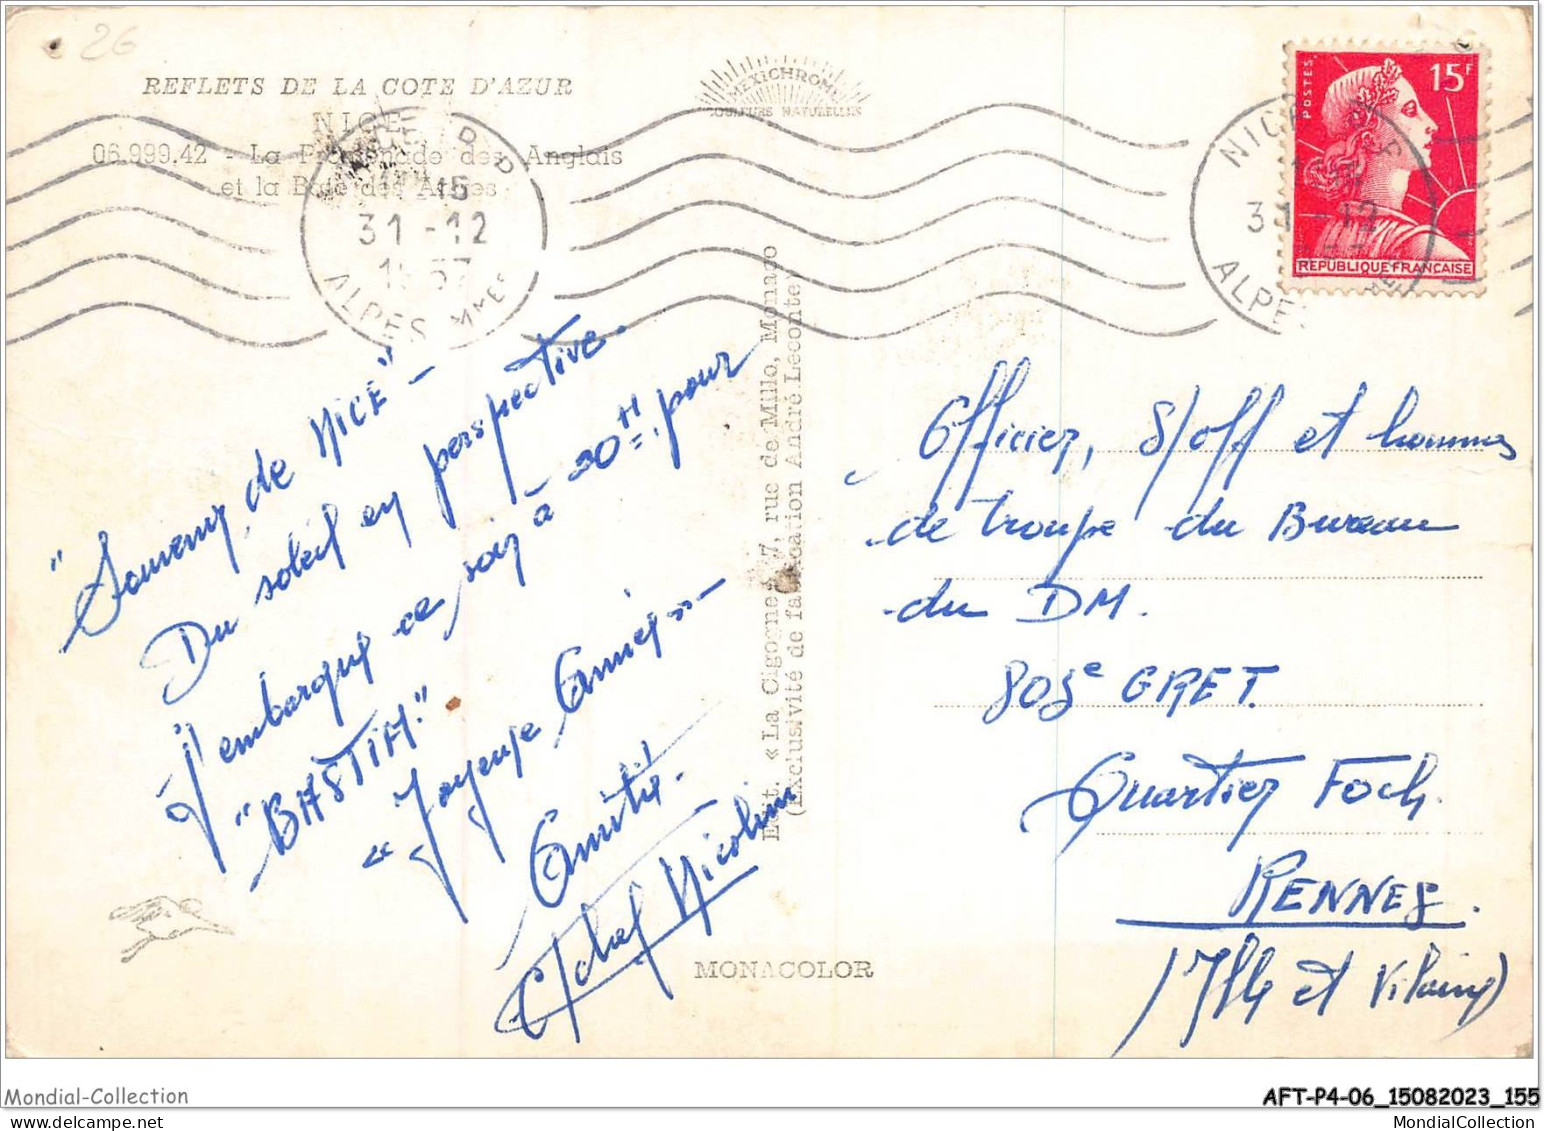 26
REFLETS DE LA COTE D'AZUR
NICE
06.999.42 - La Promenade des Anglais
et la Baie des Anges
MEXICHROME
COULEURS NATURELLES
NICE R.P.
15
31-12
1957
ALPES MMES
POSTES
15F
REPUBLIQUE FRANCAISE
NICE
31-12
ALPES
"Souvenir de NICE" -
Du soleil en perspective.
J'embarque ce soir à 20H pour
"BASTIA"
« Joyeuse Année » -
Amitié.
C/chef Nicolini
Edit. « La Cigogne », 7, rue de Millo, Monaco
(Exclusivité de fabrication André Leconte)
MONACOLOR
Officier, S/off et hommes
de troupe du Bureau
du DM.
805e GRET.
Quartier Foch.
RENNES.
(Ille et Vilaine)
Mondial-Collection
AFT-P4-06_15082023_155
MondialCollection